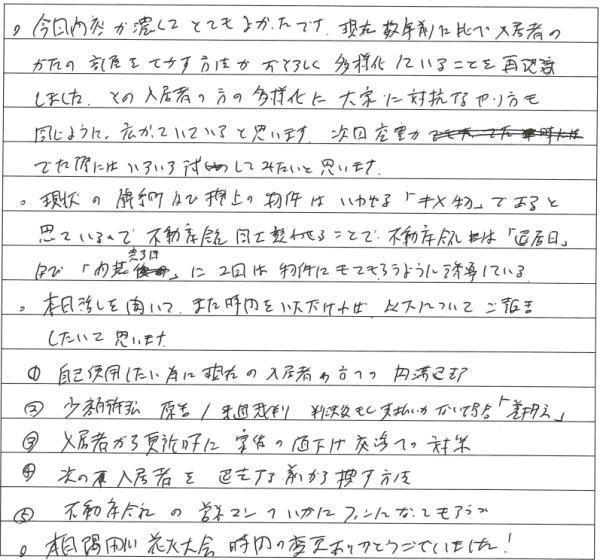 。今回内容が濃くてとてもよかったです。現在数年前に比べ入居者の
かたの部屋をさがす方法がおそろしく多様化していることを再認識
しました。その入居者の方の多様化に大家に対抗するやり方も
同じように、広がっていっていると思います。次回空室が
でた際にはいろいろ試してみたいと思います。
。現状の錦糸町及び押上の物件はいわゆる「キメ物」であると
思っているので不動産会社同士競わせることで、不動産会社には「退居日」
「内装完了日」に2回は物件にきてもらうように誘導している
。本日話しを聞いて、また時間をいただければ以下についてご報告
したいと思います
① 自己使用したい為に現在の入居者の方への円満退却
② 少額訴訟 原告/ 裁判 判決後もし支払いがない場合「差押え」
③ 入居者から更新時に家賃の値下げ交渉への対策
④ 次の入居者を退去する前から捜す方法
⑤ 不動産会社の営業マンにいかにファンになってもらうか
。本日隅田川花火大会 時間の変更ありがとうございました!